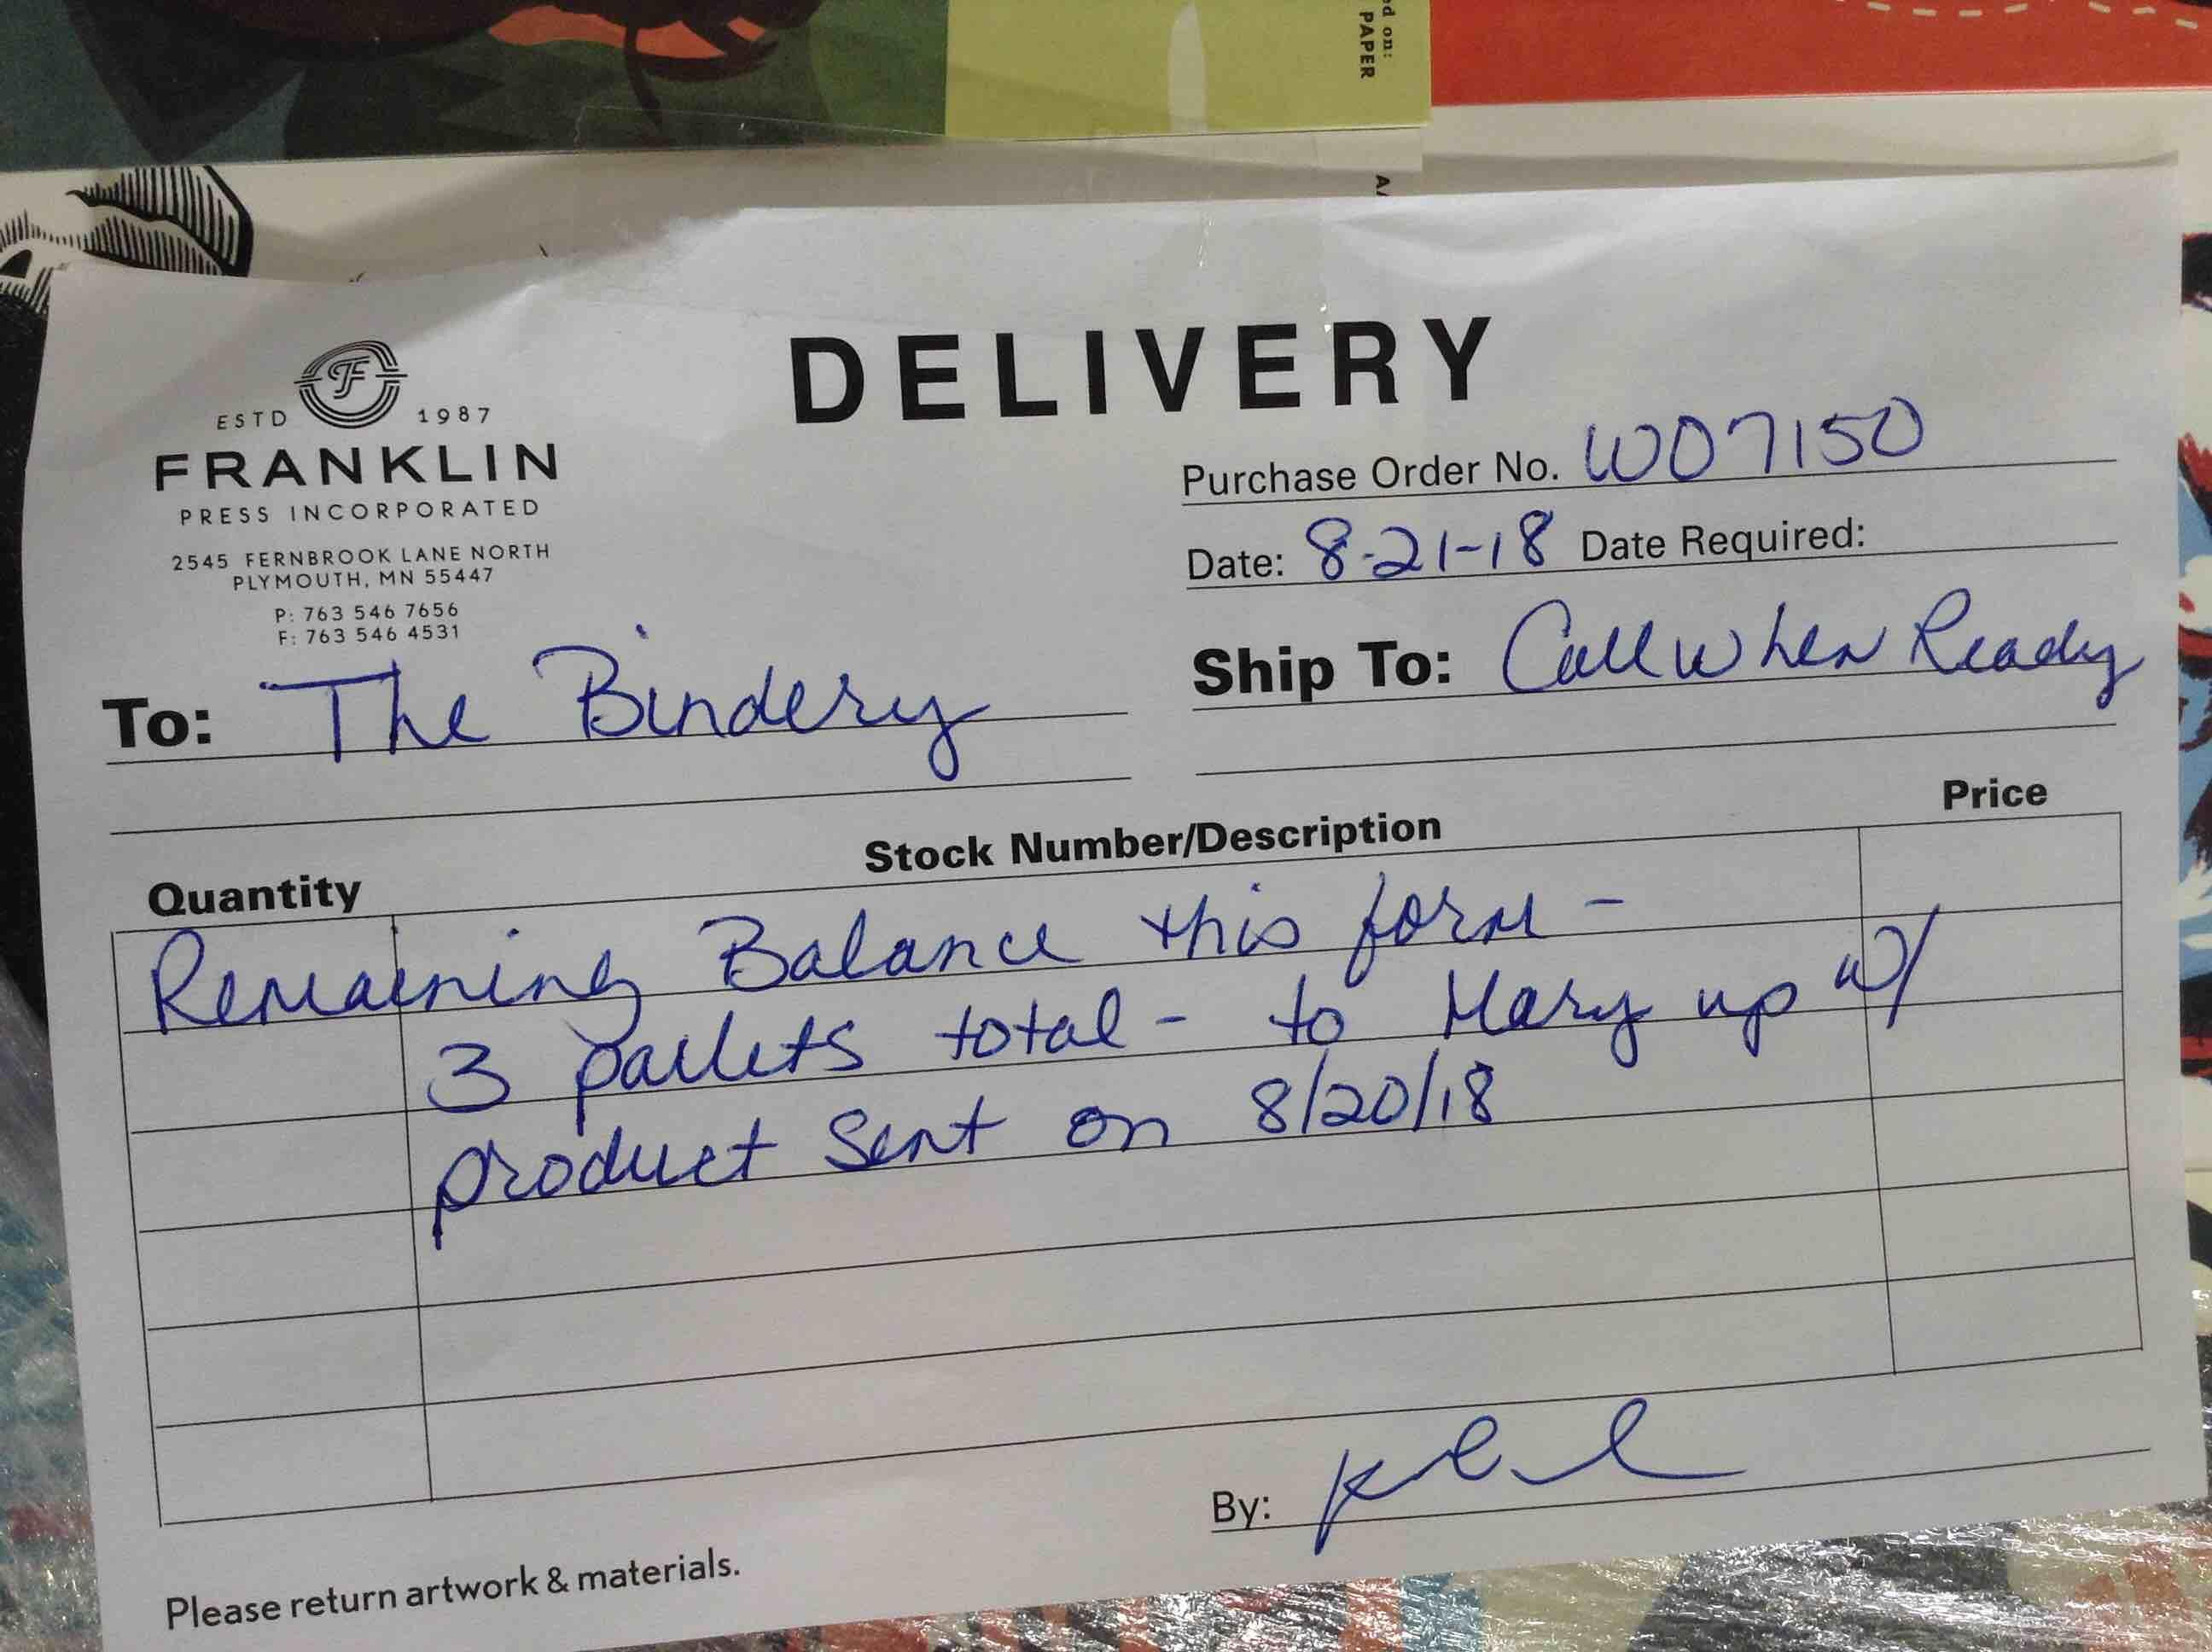 ed on:
PAPER
F
ESTD 1987
FRANKLIN
PRESS INCORPORATED
2545 FERNBROOK LANE NORTH
PLYMOUTH, MN 55447
P: 763 546 7656
F: 763 546 4531
DELIVERY
Purchase Order No. WO7150
Date: 8-21-18 Date Required:
To: The Bindery
Ship To: Call When Ready
Quantity Stock Number/Description Price
Remaining Balance this form -
3 pallets total - to Mary up w/
product sent on 8/20/18
By:
Please return artwork & materials.